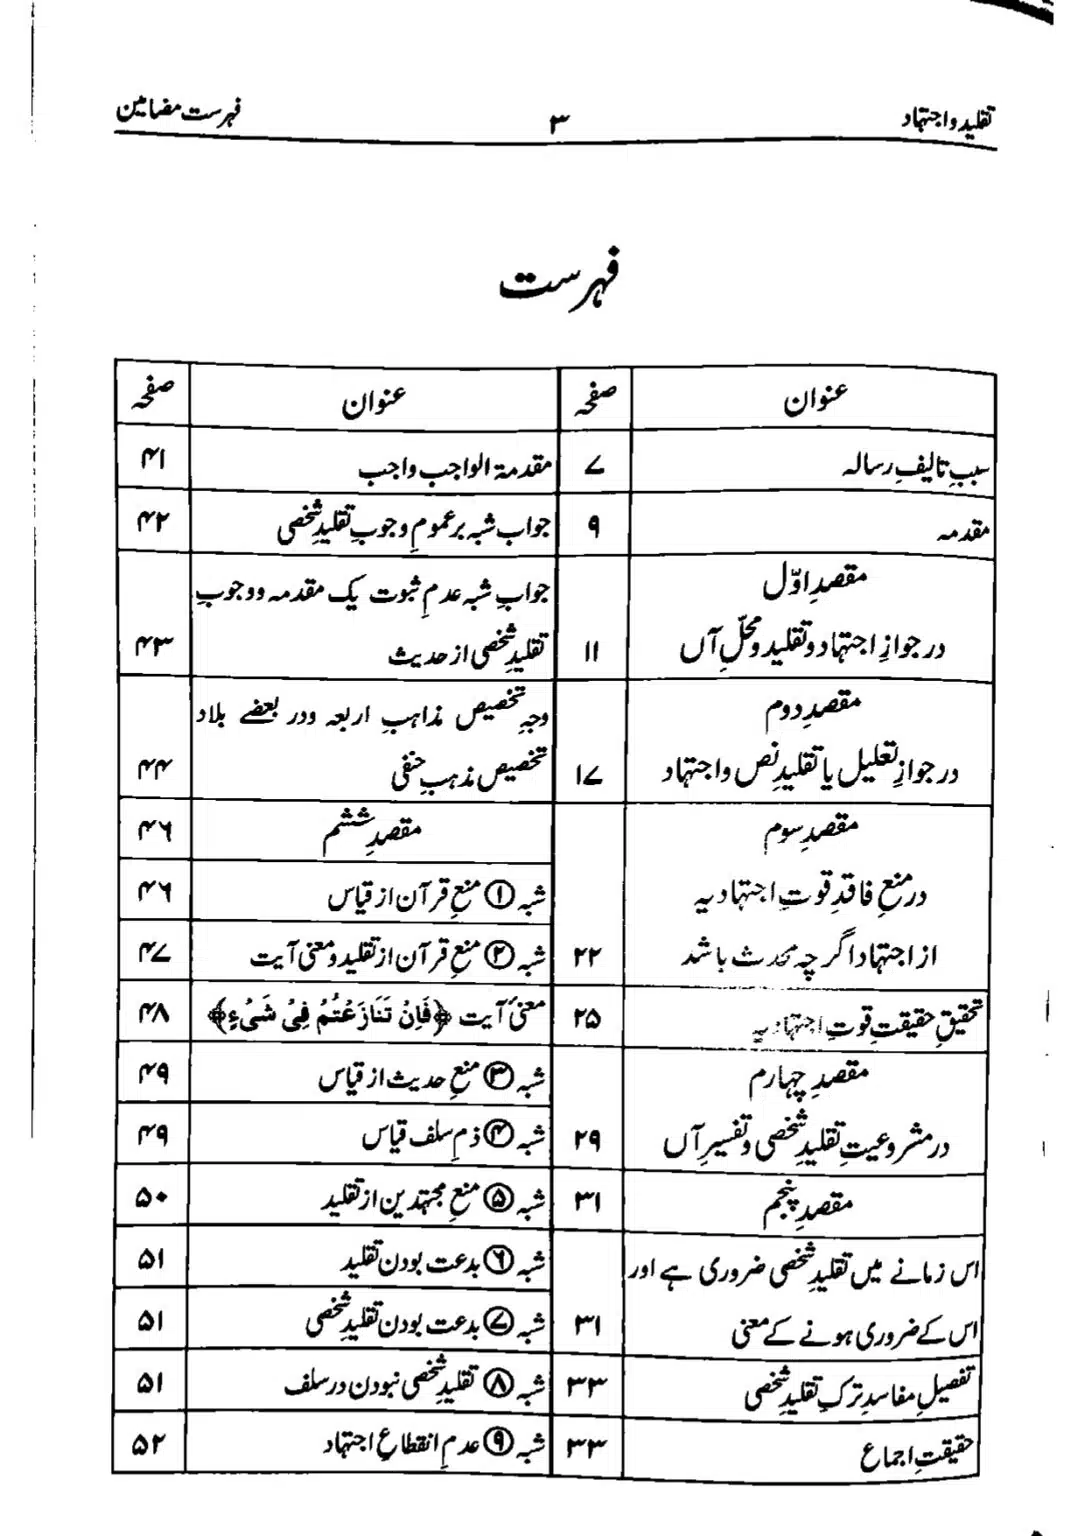 تقلید و اجتہاد ۳ فہرست مضامین
فہرست
عنوان صفحہ
سببِ تالیفِ رسالہ ۷
مقدمہ ۹
مقصدِ اوّل
در جوازِ اجتہاد و تقلید و محلِّ آں ۱۱
مقصدِ دوم
در جوازِ تعلیل یا تقلیدِ نص و اجتہاد ۱۷
مقصدِ سوم
در منعِ فاقدِ قوتِ اجتہادیہ
از اجتہاد اگرچہ محدث باشد ۲۲
تحقیقِ حقیقتِ قوتِ اجتہادیہ ۲۵
مقصدِ چہارم
در مشروعیتِ تقلیدِ شخصی و تفسیرِ آں ۲۹
مقصدِ پنجم ۳۱
اس زمانے میں تقلیدِ شخصی ضروری ہے اور
اس کے ضروری ہونے کے معنی ۳۱
تفصیلِ مفاسدِ ترکِ تقلیدِ شخصی ۳۳
حقیقتِ اجماع ۳۳
عنوان صفحہ
مقدمۃ الواجب واجب ۴۱
جواب شبہ بر عمومِ وجوبِ تقلیدِ شخصی ۴۲
جوابِ شبہ عدمِ ثبوت یک مقدمہ و وجوبِ
تقلیدِ شخصی از حدیث ۴۳
وجہِ تخصیص مذاہبِ اربعہ ودر بعضے بلاد
تخصیص مذہبِ حنفی ۴۴
مقصدِ ششم ۴۶
شبہ ① منعِ قرآن از قیاس ۴۶
شبہ ② منعِ قرآن از تقلید و معنی آیت ۴۷
معنیٔ آیت ﴿فَاِنْ تَنَازَعْتُمْ فِیْ شَیْءٍ﴾ ۴۸
شبہ ③ منعِ حدیث از قیاس ۴۹
شبہ ④ ذمِ سلف قیاس ۴۹
شبہ ⑤ منعِ مجتہدین از تقلید ۵۰
شبہ ⑥ بدعت بودن تقلید ۵۱
شبہ ⑦ بدعت بودن تقلیدِ شخصی ۵۱
شبہ ⑧ تقلیدِ شخصی نبودن در سلف ۵۱
شبہ ⑨ عدمِ انقطاعِ اجتہاد ۵۲